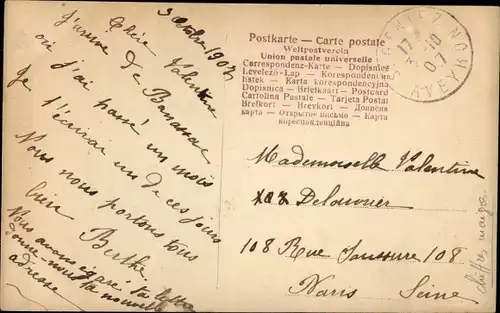 3 Octobre 1907
Chère Valentine
J'arrive de
où j'ai passé un mois
Je t'écrirai un de ces jours
Nous nous portons tous
bien Berthe
Nous avons égaré ta lettre
donne-nous ta nouvelle
adresse
Postkarte — Carte postale
Weltpostverein
Union postale universelle
Correspondenz-Karte — Dopisnice
Levelező-Lap — Korespondent
Estek — Karta korespondencyjna
Dopisnica — Briefkaart — Postcard
Cartolina Postale — Tarjeta Postal
Brefkort — Brevkort — Дописна
карта — Открытое письмо — Карта
кореспонденційна
17
3-10
07
AVEYRON
Mademoiselle Valentine
Delaunier
108 Rue 108
Paris Seine
chiffres maigres